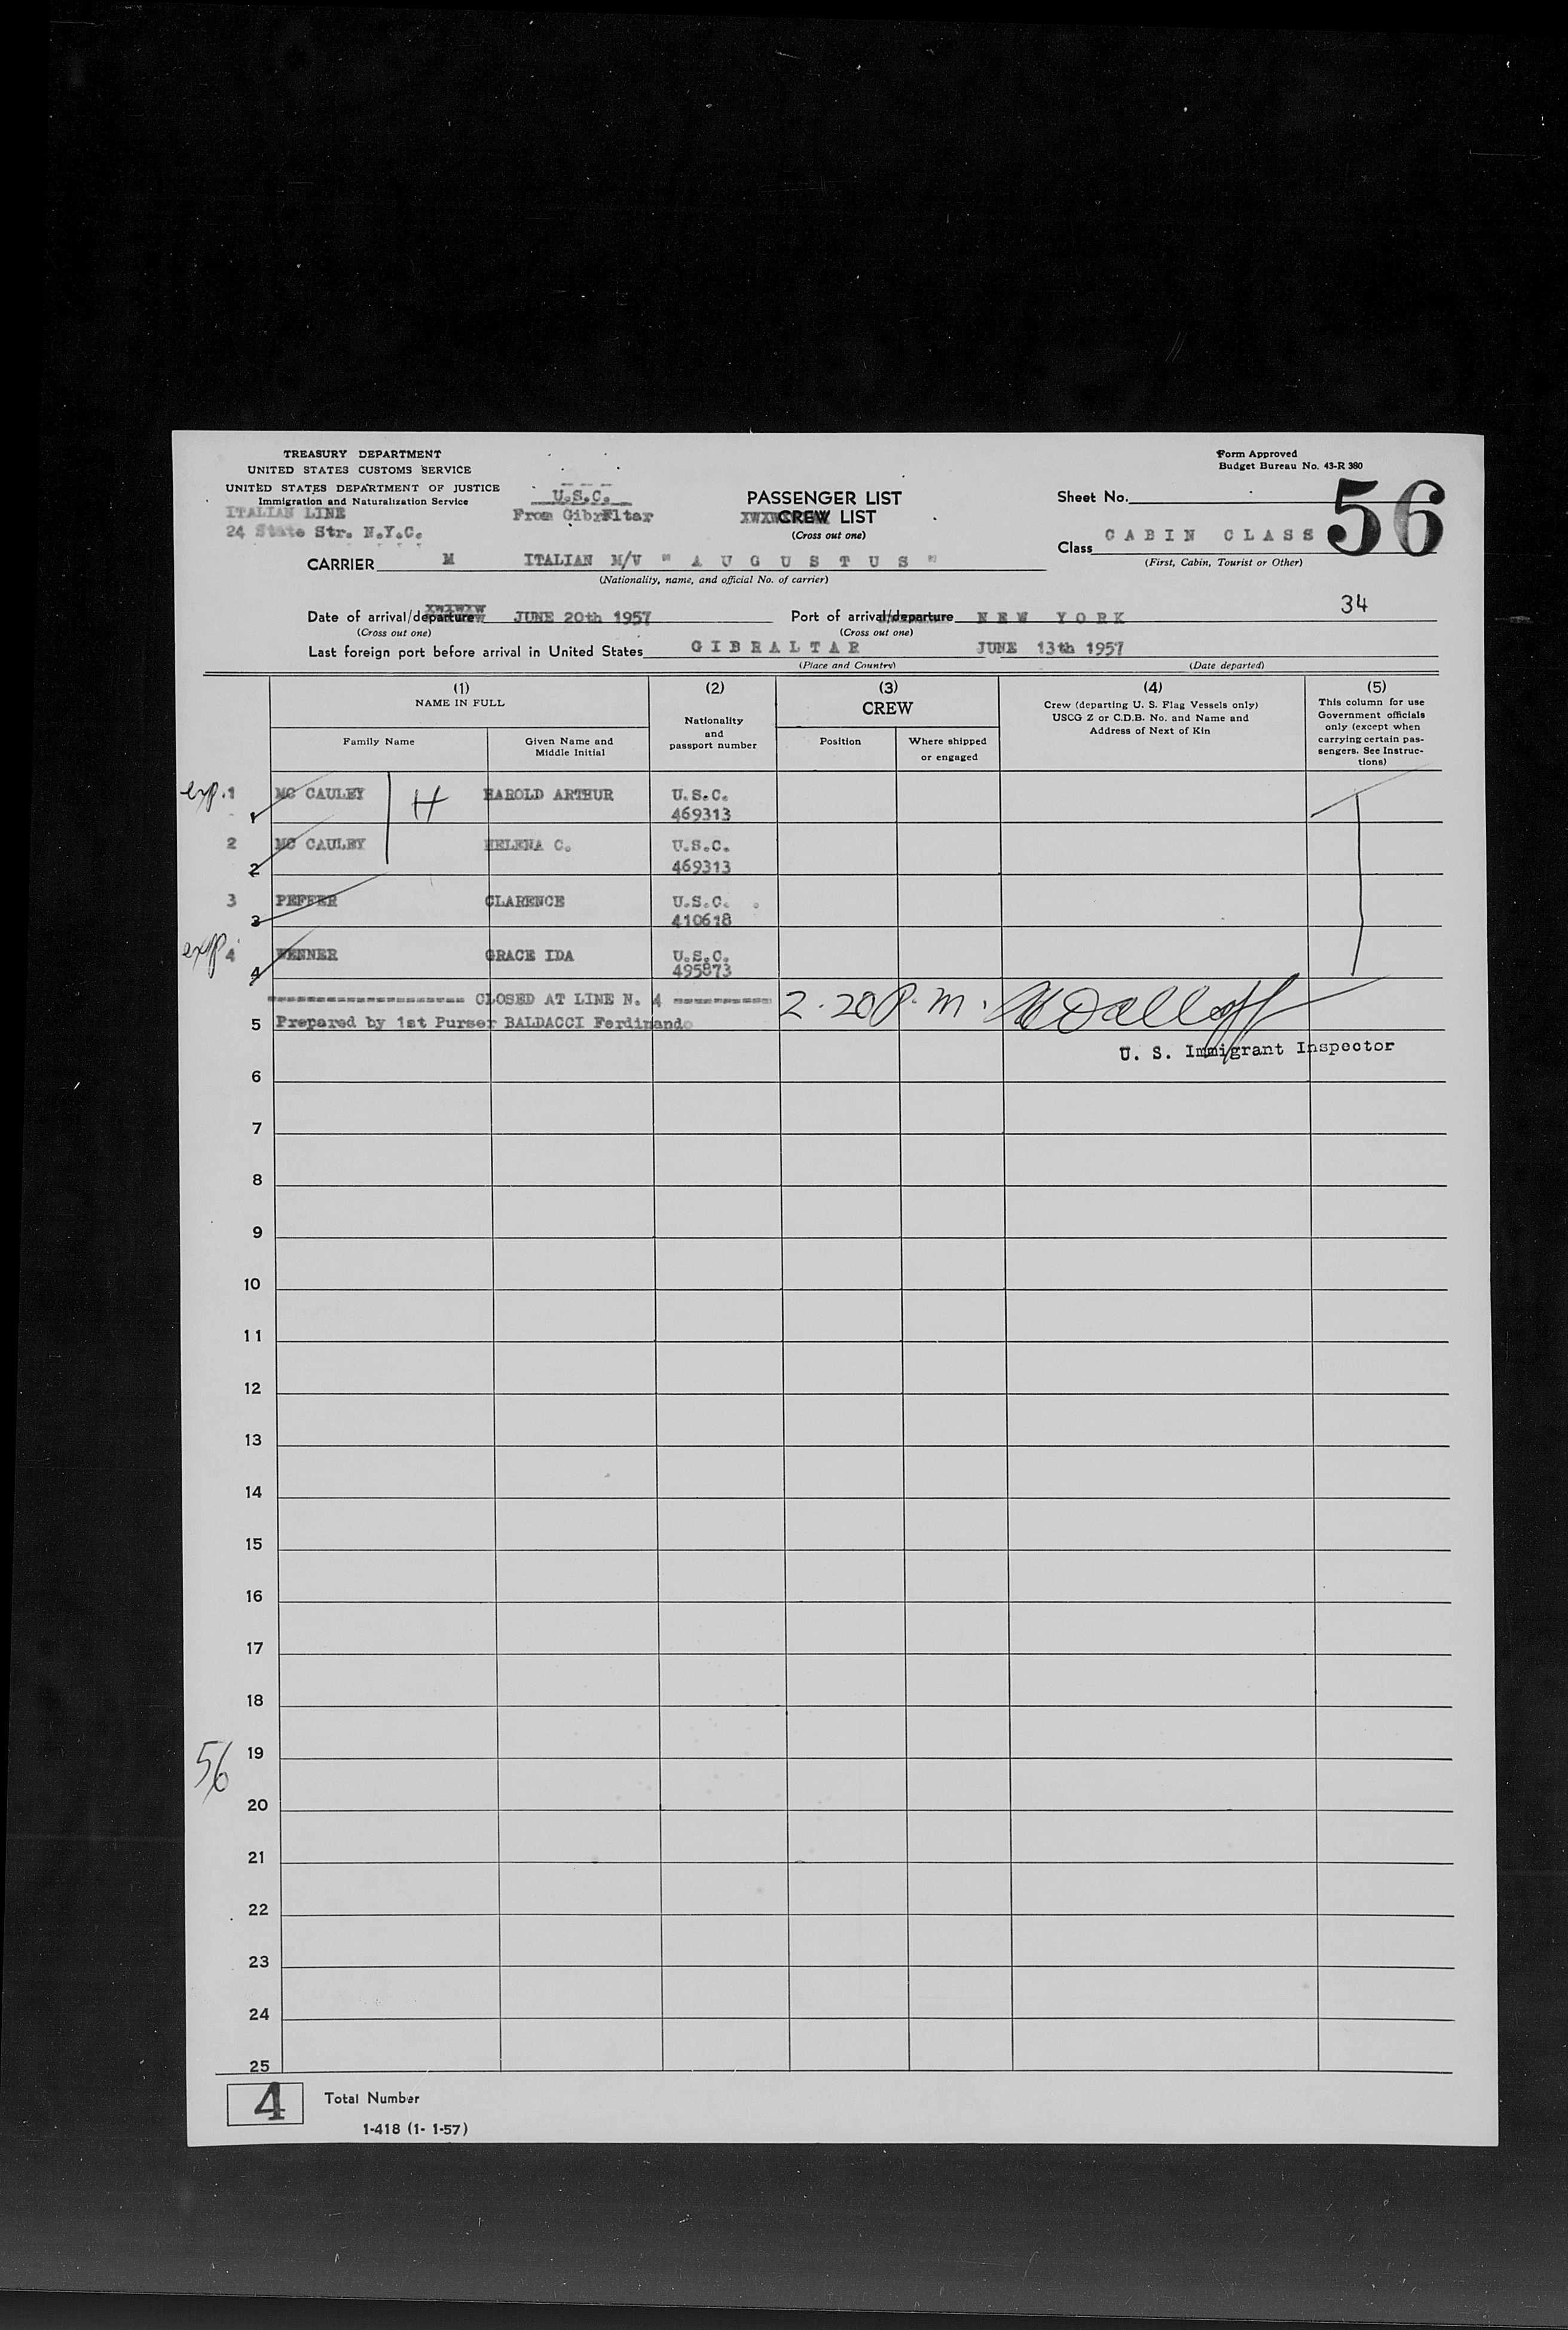 TREASURY DEPARTMENT
UNITED STATES CUSTOMS SERVICE
UNITED STATES DEPARTMENT OF JUSTICE
Immigration and Naturalization Service
ITALIAN LINE
24 State Str. N.Y.C.
U.S.C.
From Gibraltar
PASSENGER LIST
CREW LIST
(Cross out one)
Form Approved
Budget Bureau No. 43-R 380
Sheet No. 56
Class CABIN CLASS
(First, Cabin, Tourist or Other)
CARRIER M ITALIAN M/V " A U G U S T U S "
(Nationality, name, and official No. of carrier)
34
Date of arrival/departure JUNE 20th 1957 Port of arrival/departure NEW YORK
(Cross out one) (Cross out one)
Last foreign port before arrival in United States GIBRALTAR JUNE 13th 1957
(Place and Country) (Date departed)
(1) NAME IN FULL
Family Name
Given Name and Middle Initial
(2)
Nationality and passport number
(3) CREW
Position
Where shipped or engaged
(4)
Crew (departing U. S. Flag Vessels only) USCG Z or C.D.B. No. and Name and Address of Next of Kin
(5)
This column for use Government officials only (except when carrying certain passengers. See Instructions)
exp. 1 MC CAULEY H HAROLD ARTHUR U.S.C.
1 469313
2 MC CAULEY HELENA C. U.S.C.
2 469313
3 PEFFER CLARENCE U.S.C.
3 410618
exp 4 WENNER GRACE IDA U.S.C.
4 495873
CLOSED AT LINE N. 4 2.20 P.M.
5 Prepared by 1st Purser BALDACCI Ferdinando
U. S. Immigrant Inspector
6
7
8
9
10
11
12
13
14
15
16
17
18
56 19
20
21
22
23
24
25
4 Total Number
1-418 (1- 1-57)